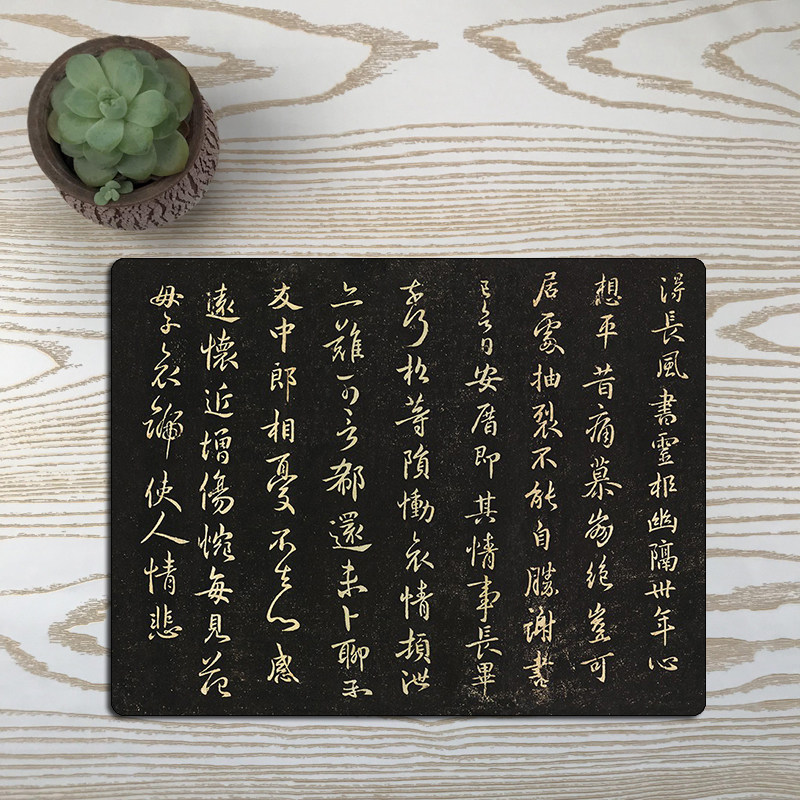 得長風書靈柩幽隔卅年心
想平昔痛慕崩絕豈可
居處抽裂不能自勝謝書
日安厝即其情事長畢
奈何松等隕慟哀情頓泄
亦難可言郗還未卜聊示
友中郎相憂不去心感
遠懷近增傷惋每見范
母子哀號使人情悲